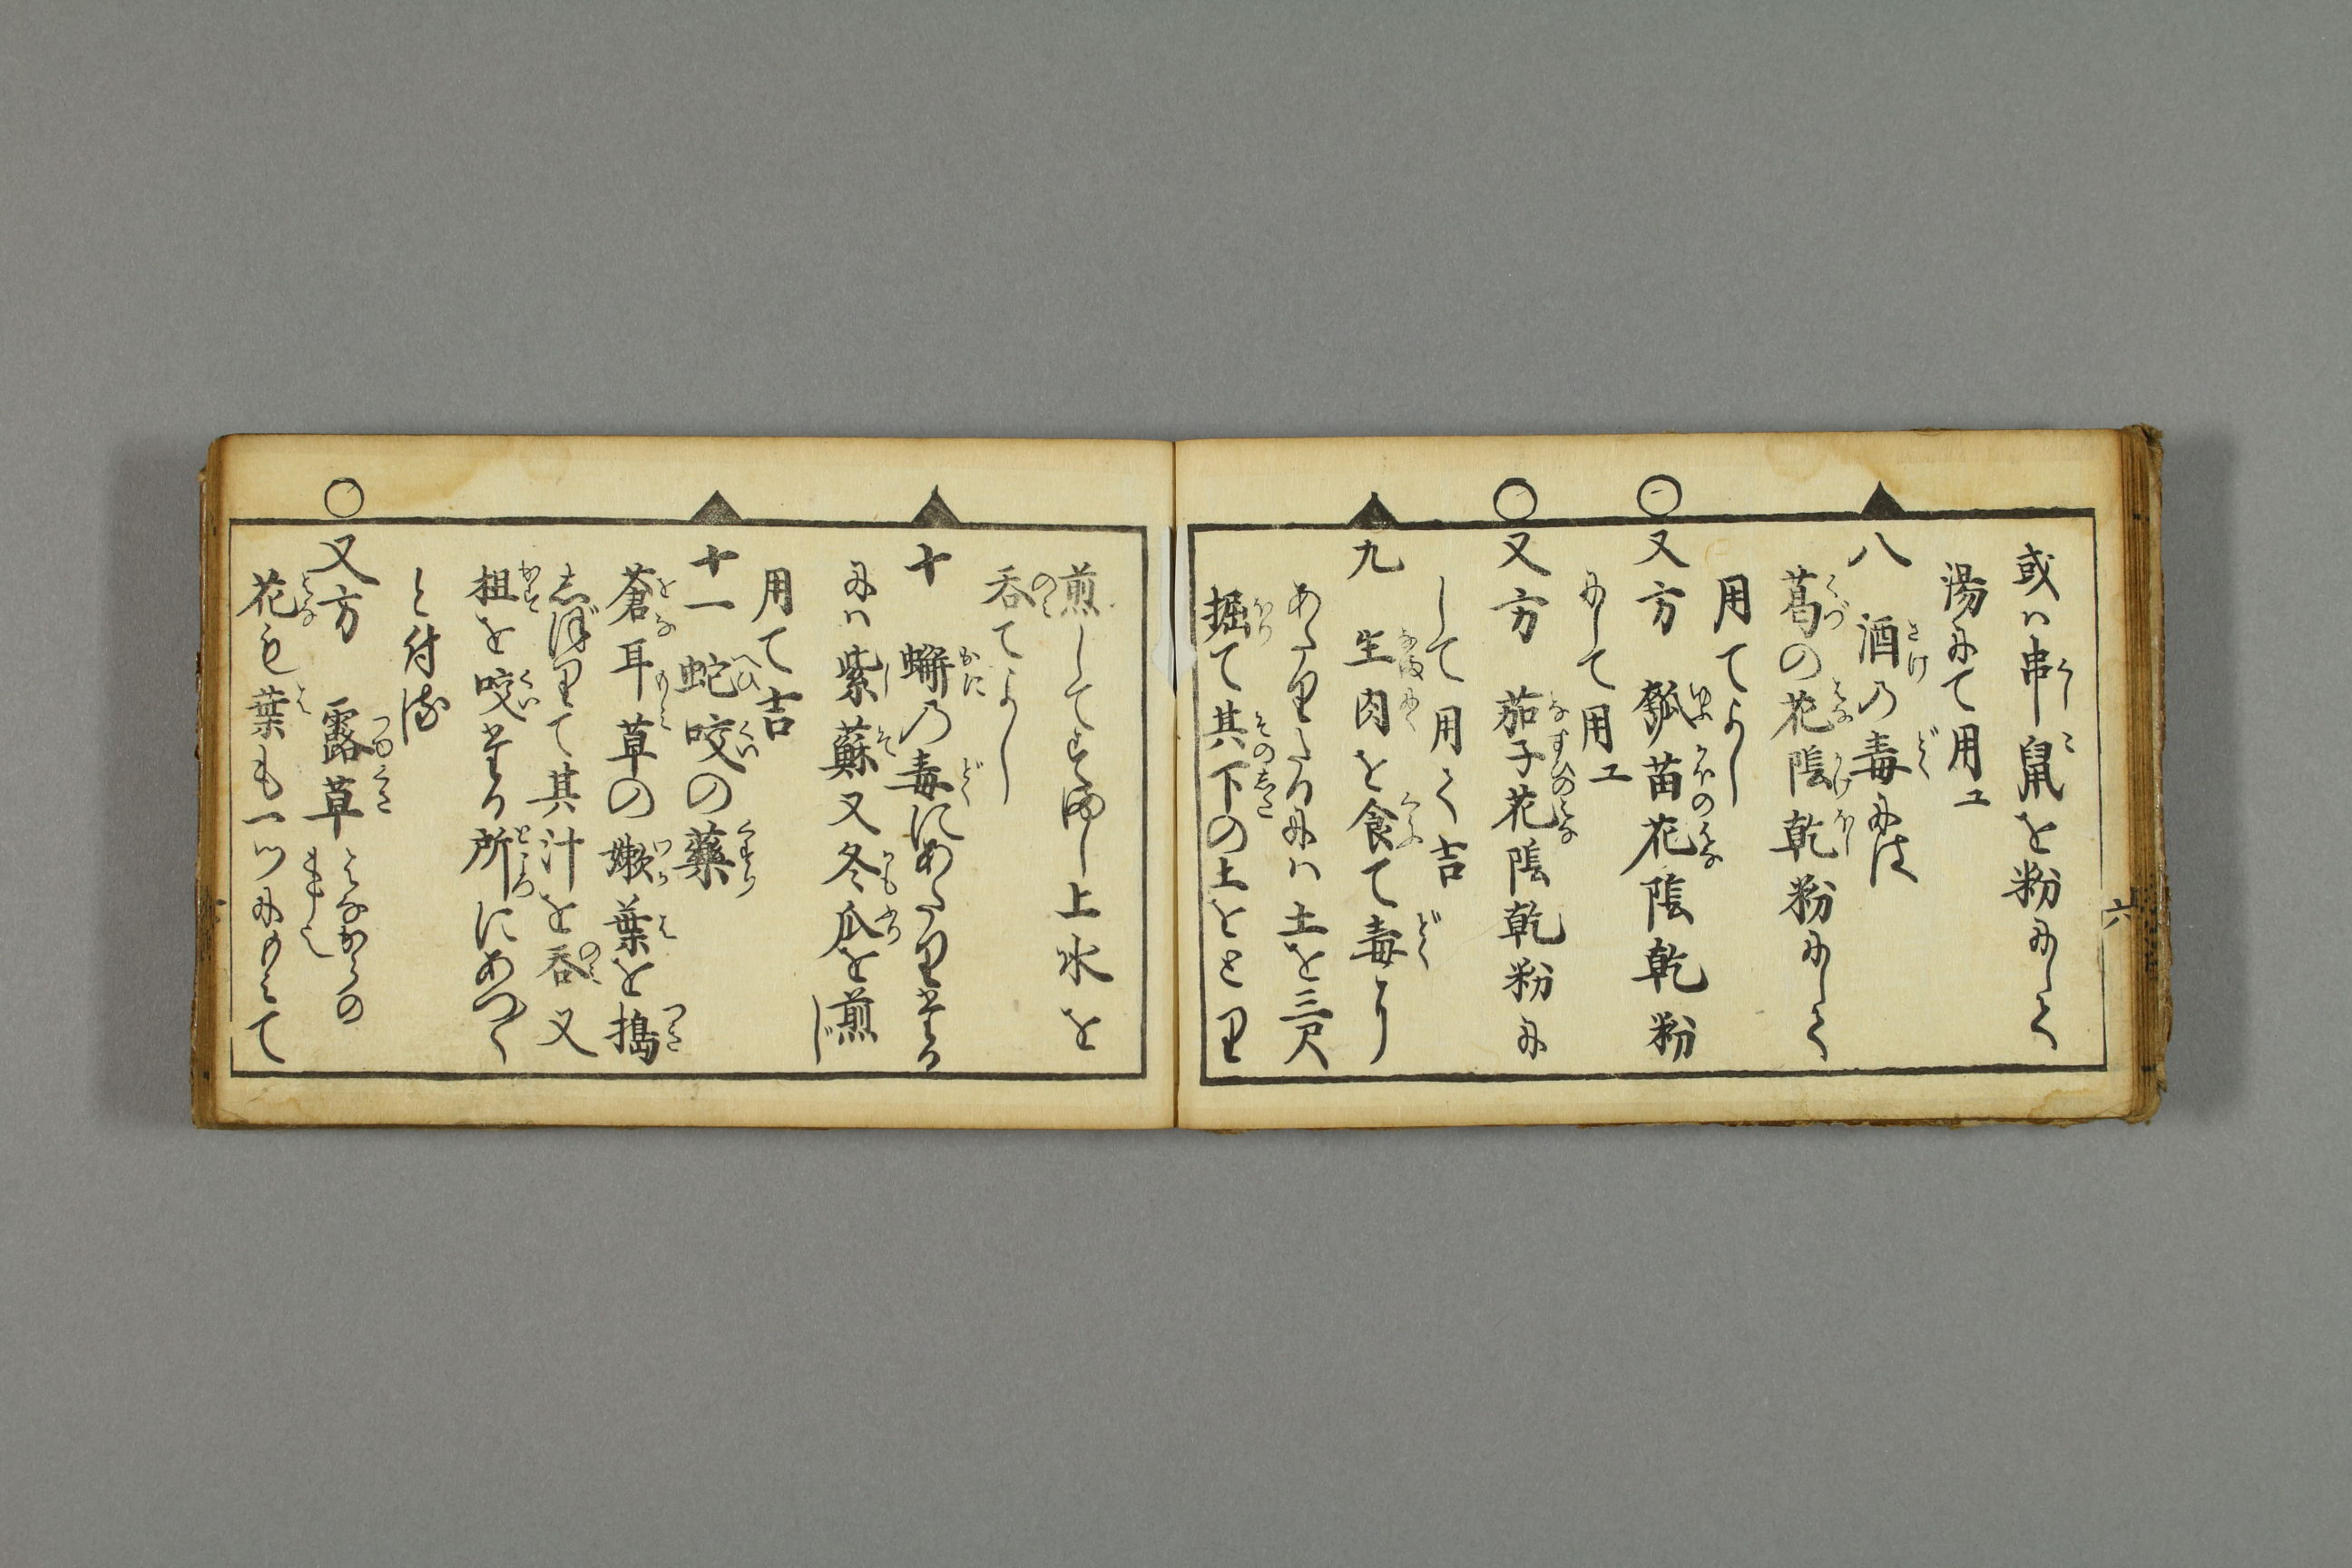 或ハ串鼠を粉にして
湯にて用ユ
八 酒の毒には
葛の花陰乾粉にして
用てよし
○又方 瓠苗花陰乾粉
にして用ユ
○又方 茄子花陰乾粉に
して用て吉
九 生肉を食て毒に
あたりたるにハ土を三尺
掘て其下の土をとり
六
煎してすまし上水を
呑てよし
十 蠏の毒にあたりたる
にハ紫蘇又冬瓜を煎じ
用て吉
十一 蛇咬の薬
蒼耳草の嫩葉を搗
しぼりて其汁を呑又
柤を咬たる所にあつく
と付る
○又方 露草
花も葉も一ツにもみて